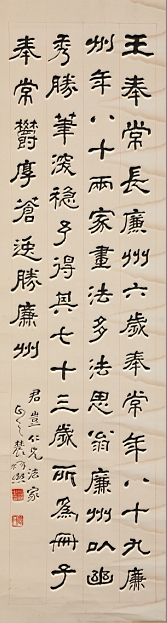 王奉常長廉州六歲奉常年八十九廉
州年八十兩家畫法多法思翁廉州以幽
秀勝筆深穩予得其七十三歲所為冊子
奉常欝厚蒼逸勝廉州
君豈仁兄法家
正之